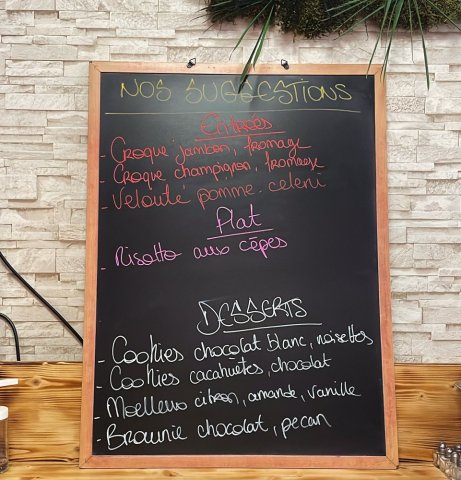 NOS SUGGESTIONS
Entrées
- Croque jambon, fromage
- Croque champignon, fromage
- Velouté pomme-celeri
Plat
- Risotto aux cêpes
DESSERTS
- Cookies chocolat blanc, noisettes
- Cookies cacahuètes, chocolat
- Moelleux citron, amande, vanille
- Brownie chocolat, pecan